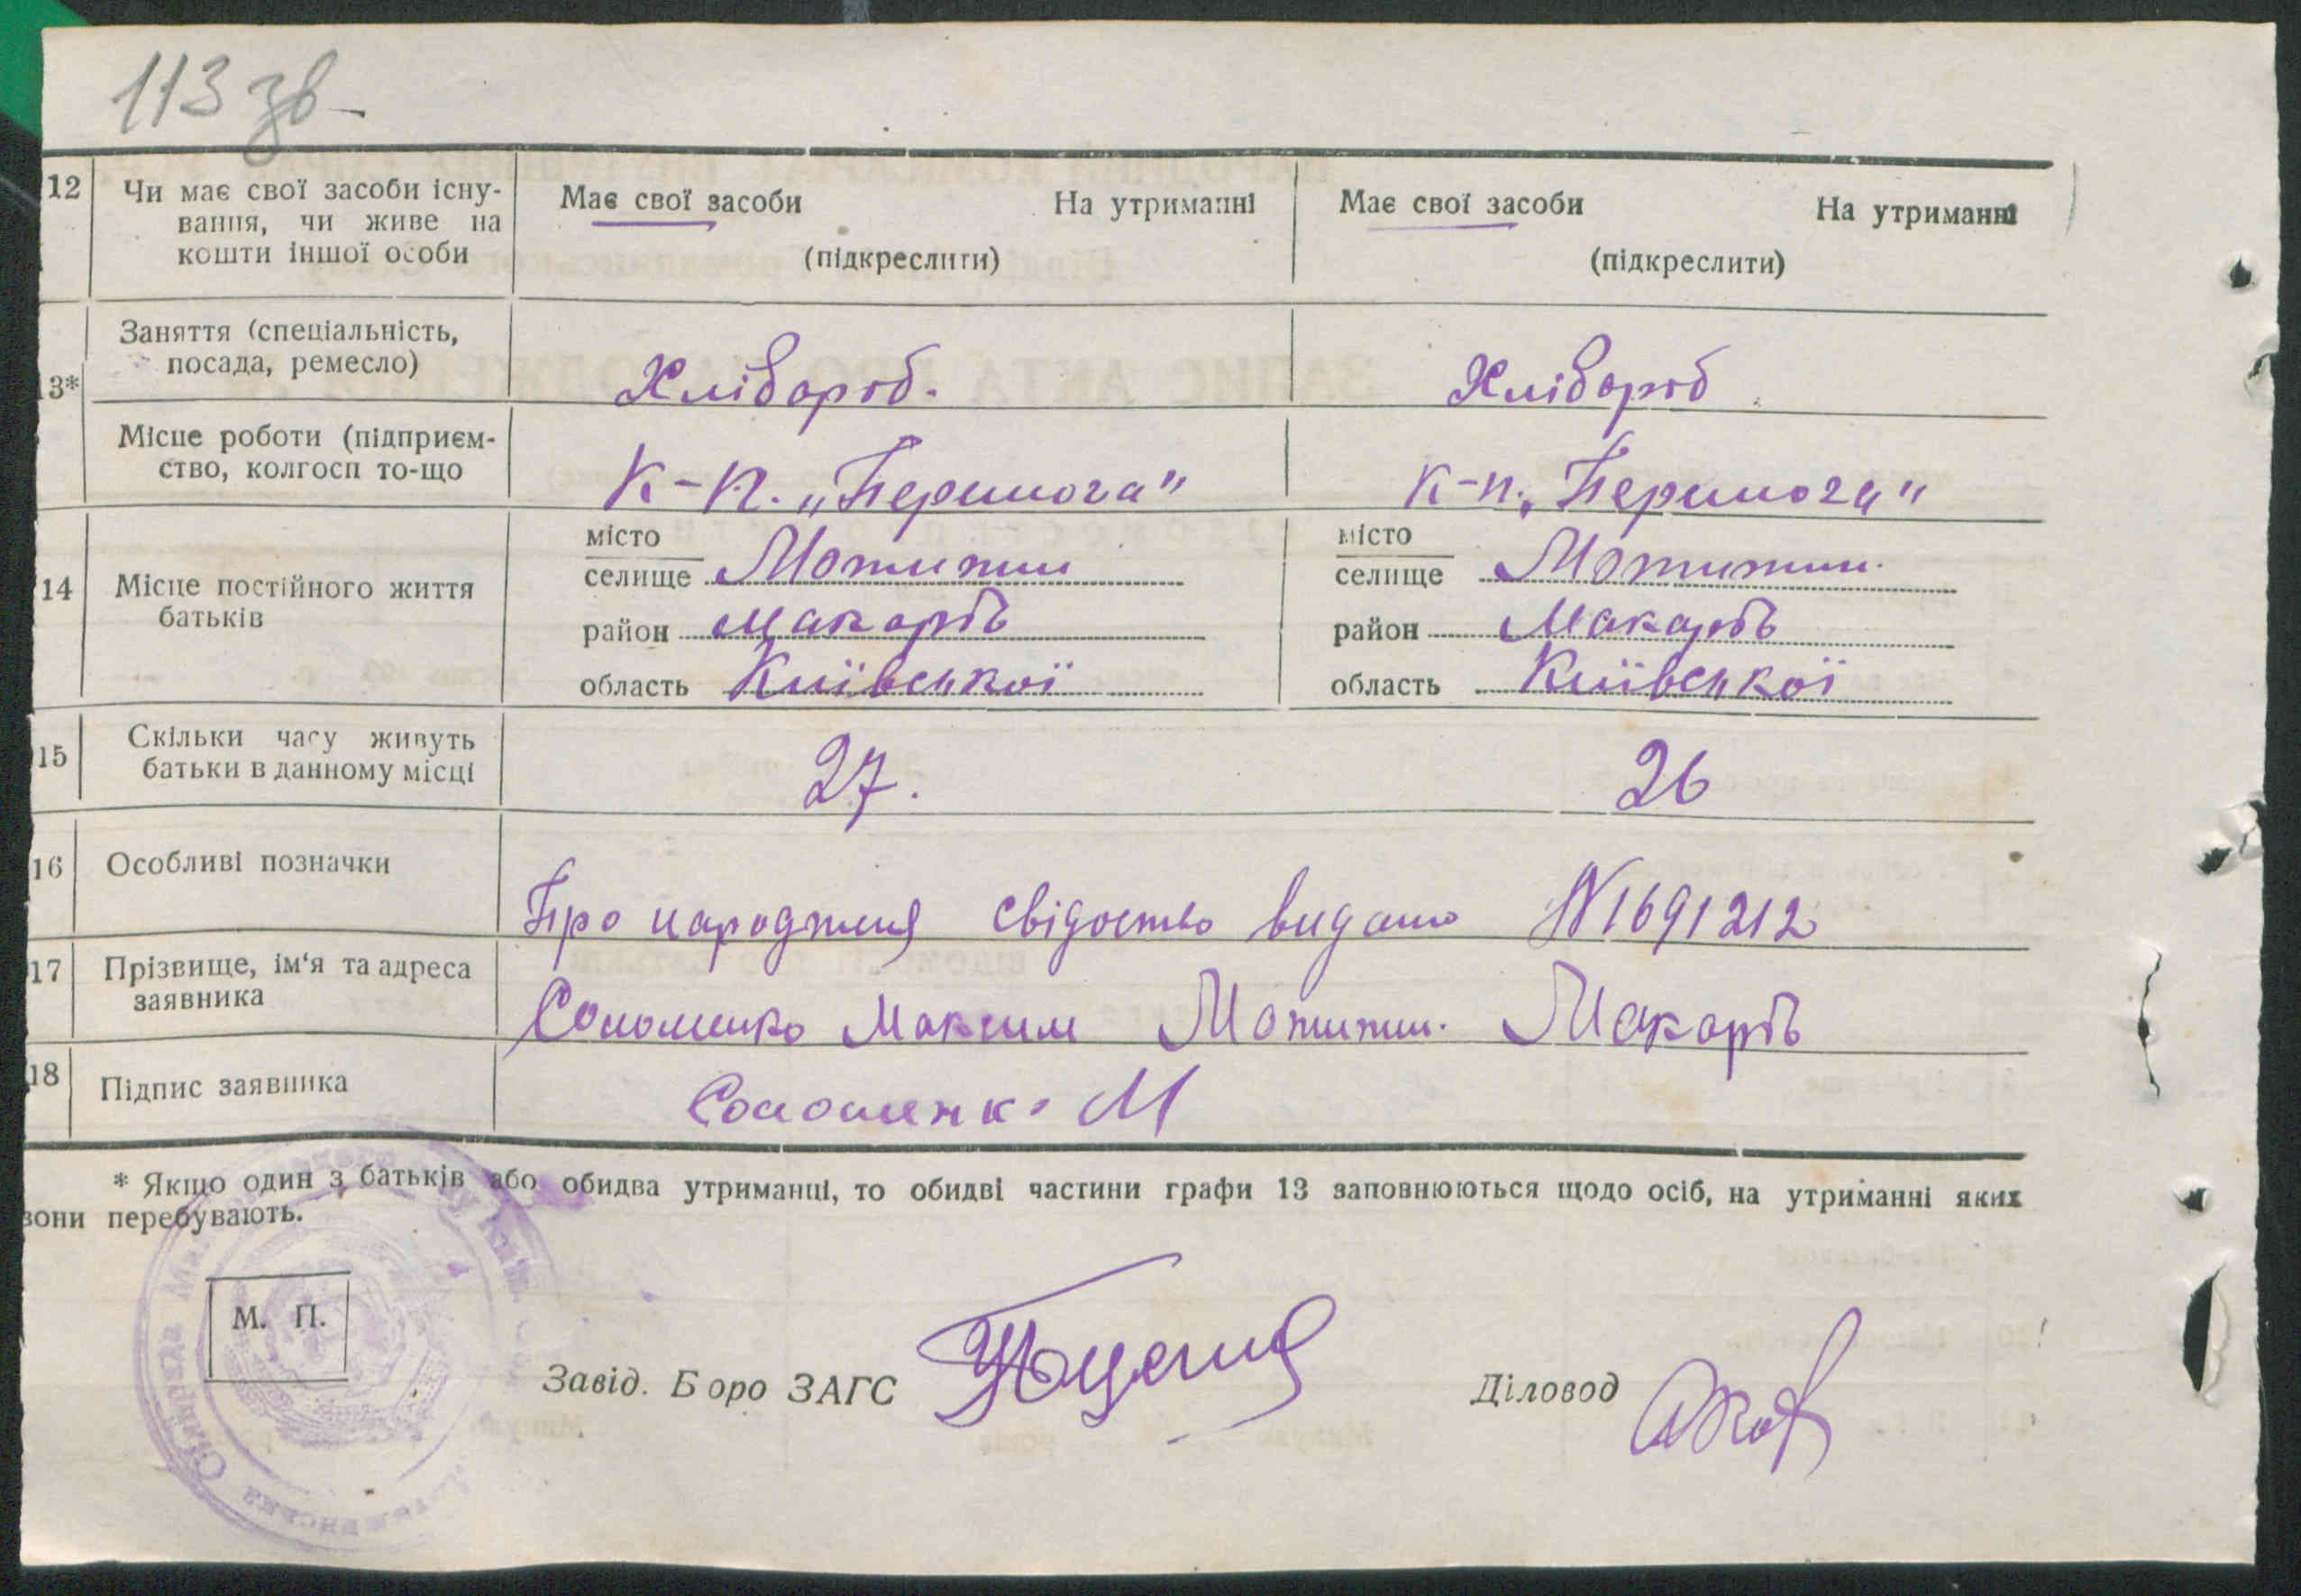 113 зв
12 Чи має свої засоби існу-
вання, чи живе на
кошти іншої особи
Має свої засоби На утриманні
(підкреслити)
Має свої засоби На утриманні
(підкреслити)
13* Заняття (спеціальність,
посада, ремесло)
Хлібороб.
Хлібороб
Місце роботи (підприєм-
ство, колгосп то-що
К-п. „Перимога"
к-п. „Перимога"
14 Місце постійного життя
батьків
місто
селище Мотижин
район Макарів
область Київської
місто
селище Мотижин.
район Макарів
область Київської
15 Скільки часу живуть
батьки в данному місці
27.
26
16 Особливі позначки
Про народження свідоство видано № 1691212
17 Прізвище, ім'я та адреса
заявника
Соломенко Максим Мотижин. Макарів
18 Підпис заявника
Соломенко М
* Якщо один з батьків або обидва утриманці, то обидві частини графи 13 заповнюються щодо осіб, на утриманні яких
вони перебувають.
М. П.
Завід. Бюро ЗАГС
Діловод